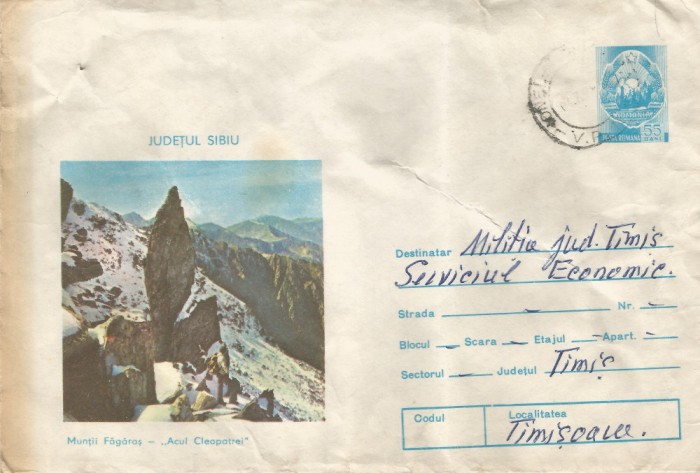 JUDEȚUL SIBIU
ROMANIA
POȘTA ROMANA 55
V.P.
Destinatar Militia jud. Timiș
Serviciul Economic.
Strada — Nr. —
Blocul — Scara — Etajul — Apart. —
Sectorul — Județul Timiș
Codul
Localitatea
Timișoara.
Munții Făgăraș – „Acul Cleopatrei"